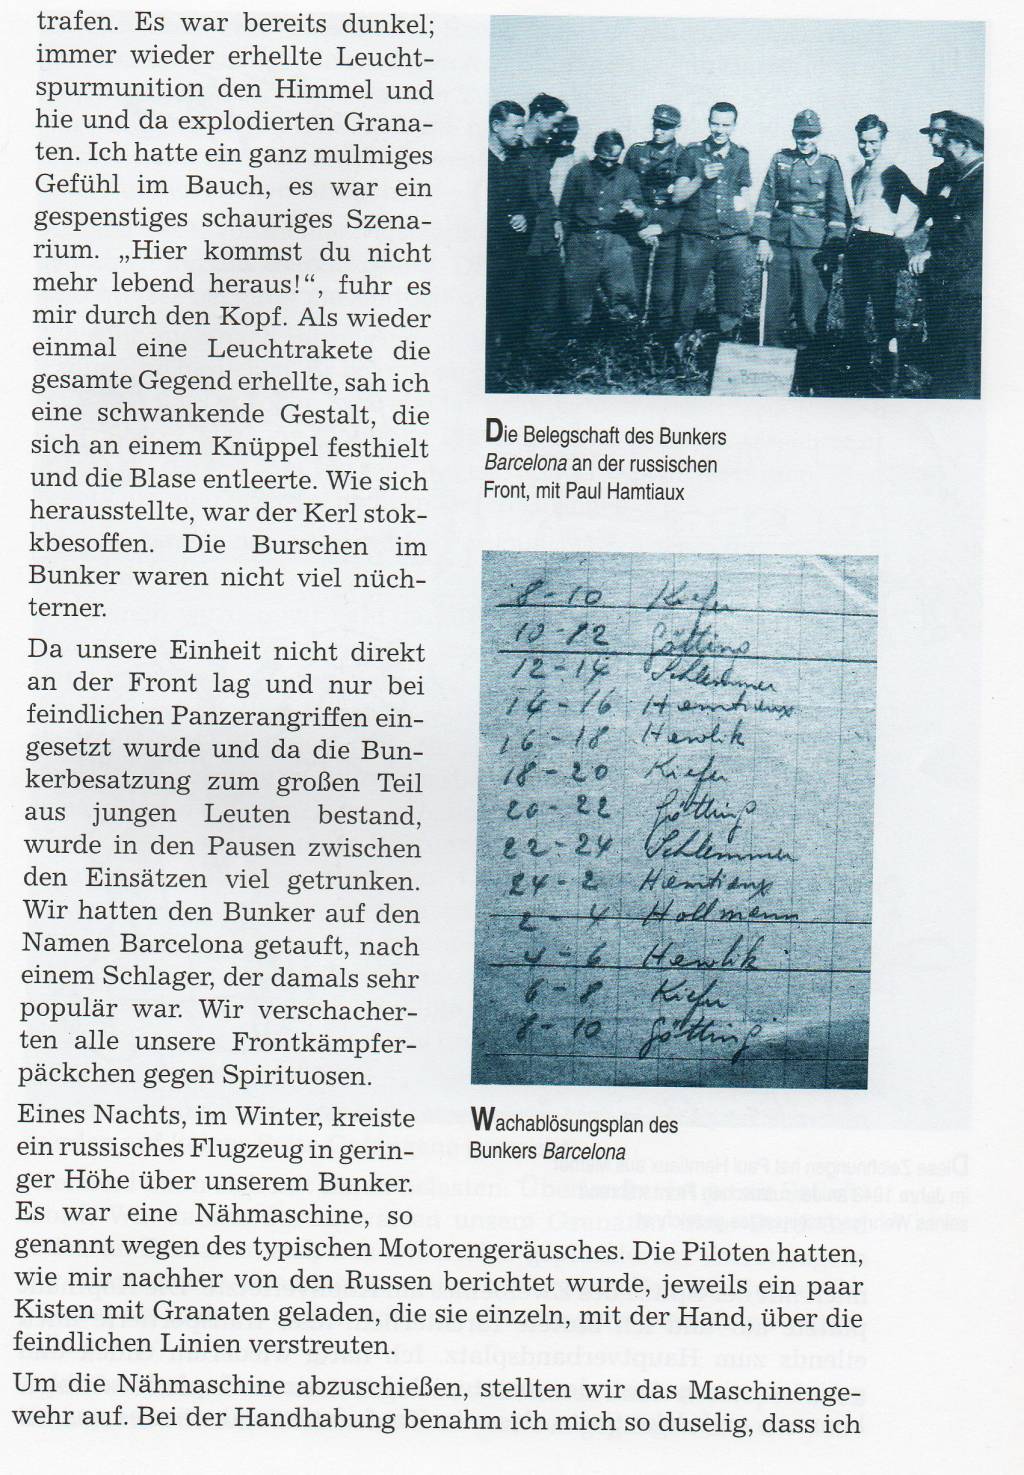 trafen. Es war bereits dunkel;
immer wieder erhellte Leucht-
spurmunition den Himmel und
hie und da explodierten Grana-
ten. Ich hatte ein ganz mulmiges
Gefühl im Bauch, es war ein
gespenstiges schauriges Szena-
rium. „Hier kommst du nicht
mehr lebend heraus!“, fuhr es
mir durch den Kopf. Als wieder
einmal eine Leuchtrakete die
gesamte Gegend erhellte, sah ich
eine schwankende Gestalt, die
sich an einem Knüppel festhielt
und die Blase entleerte. Wie sich
herausstellte, war der Kerl stok-
kbesoffen. Die Burschen im
Bunker waren nicht viel nüch-
terner.
Da unsere Einheit nicht direkt
an der Front lag und nur bei
feindlichen Panzerangriffen ein-
gesetzt wurde und da die Bun-
kerbesatzung zum großen Teil
aus jungen Leuten bestand,
wurde in den Pausen zwischen
den Einsätzen viel getrunken.
Wir hatten den Bunker auf den
Namen Barcelona getauft, nach
einem Schlager, der damals sehr
populär war. Wir verschacher-
ten alle unsere Frontkämpfer-
päckchen gegen Spirituosen.
Eines Nachts, im Winter, kreiste
ein russisches Flugzeug in gerin-
ger Höhe über unserem Bunker.
Es war eine Nähmaschine, so
genannt wegen des typischen Motorengeräusches. Die Piloten hatten,
wie mir nachher von den Russen berichtet wurde, jeweils ein paar
Kisten mit Granaten geladen, die sie einzeln, mit der Hand, über die
feindlichen Linien verstreuten.
Um die Nähmaschine abzuschießen, stellten wir das Maschinenge-
wehr auf. Bei der Handhabung benahm ich mich so duselig, dass ich
Die Belegschaft des Bunkers
Barcelona an der russischen
Front, mit Paul Hamtiaux
8 - 10 Kiefer
10 - 12 Götting
12 - 14 Schlemmer
14 - 16 Hamtiaux
16 - 18 Hawlik
18 - 20 Kiefer
20 - 22 Götting
22 - 24 Schlemmer
24 - 2 Hamtiaux
2 - 4 Hollmann
4 - 6 Hawlik
6 - 8 Kiefer
8 - 10 Götting
Wachablösungsplan des
Bunkers Barcelona